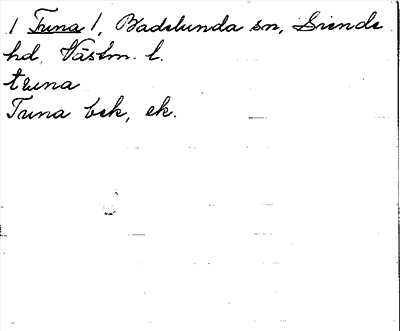 / Tuna /, Badelunda sn, Siende
hd, Västm. l.
tuna
Tuna bek, ek.